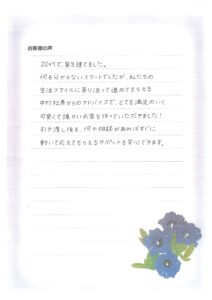 お客様の声
20代で、家を建てました。
何も分からないスタートでしたが、私たちの
生活スタイルに寄り添って進めてもらえる
中村社長からのアドバイスで、とても満足のいく
可愛くて強いお家を作っていただきました!
引き渡し後も、何か相談があればすぐに
動いて応えてもらえるサポートも安心できます。